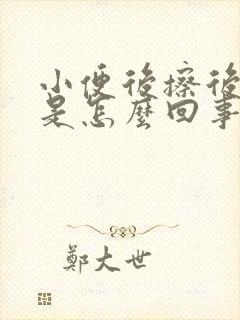 小便後擦後
是怎麼回事
鄭大世